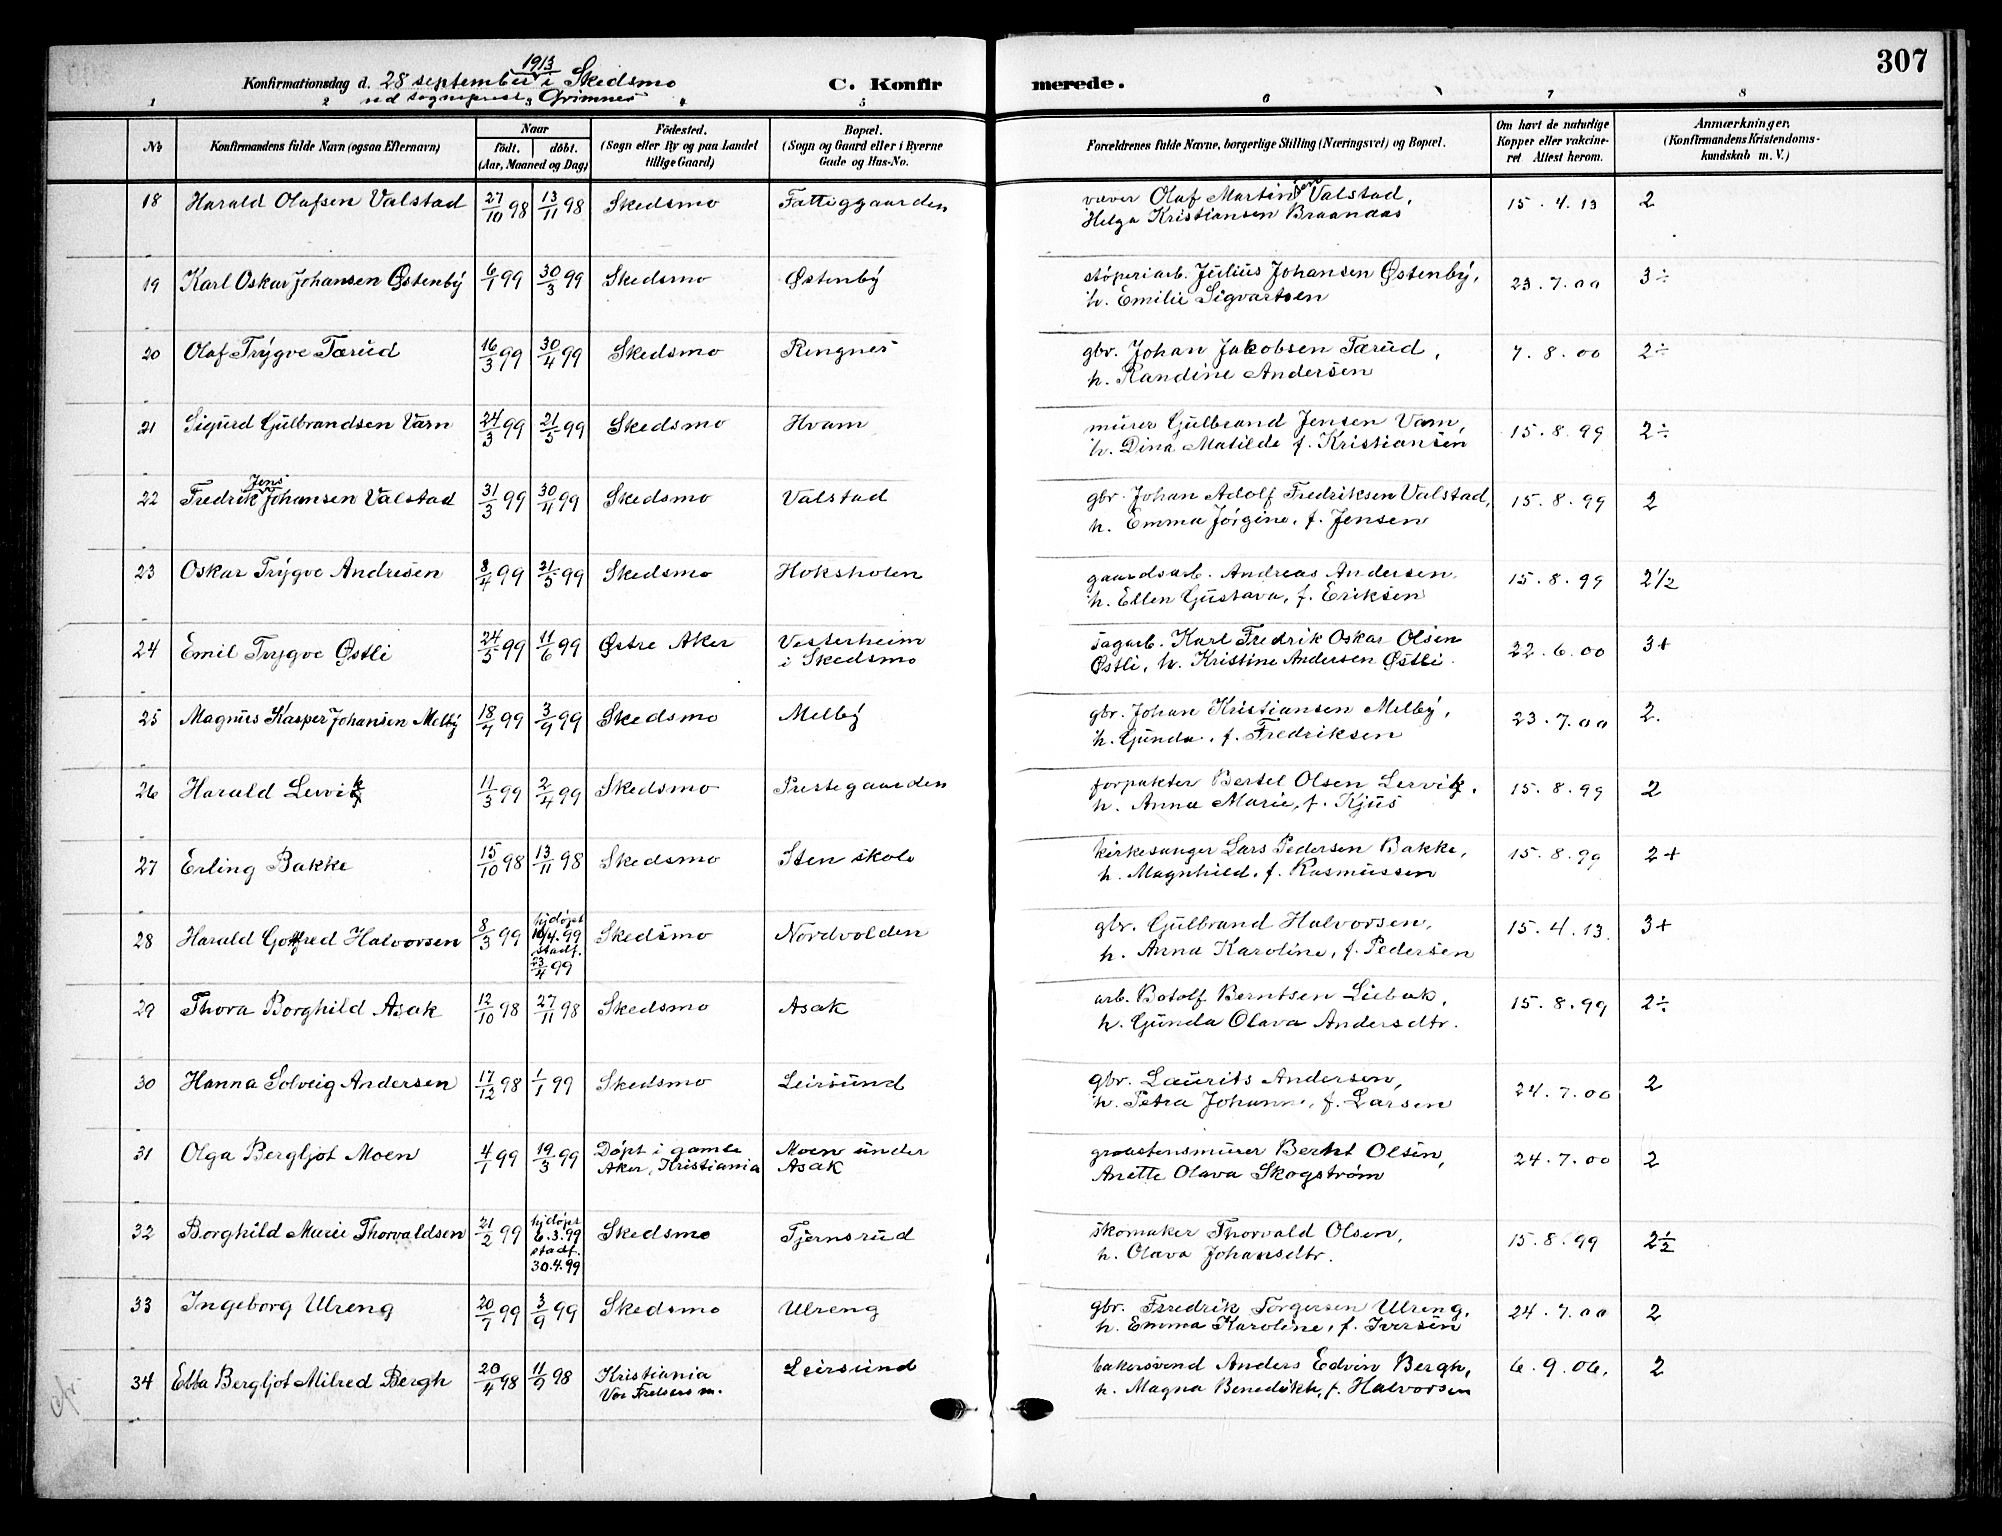 307
1913
Konfirmationsdag d. 28 september i Skedsmo C. Konfirmerede.
ved sogneprest Grimnes
1 2 3 4 5 6 7 8
No
Konfirmandens fulde Navn (ogsaa Efternavn)
Naar
födt. döbt.
(Aar, Maaned og Dag)
Födested.
(Sogn eller By og paa Landet
tillige Gaard)
Bopæl.
(Sogn og Gaard eller i Byerne
Gade og Hus-No.
Forældrenes fulde Navne, borgerlige Stilling (Næringsvei) og Bopæl.
Om havt de naturlige
Kopper eller vakcine-
ret Attest herom.
Anmærkninger,
(Konfirmandens Kristendoms-
kundskab m. V.)
18 Harald Olafsen Valstad 27/10 98 13/11 98 Skedsmo Fattiggaarden væver Olaf Martinsen Valstad, 15.4.13 2
Helga Kristiansen Braanaas
19 Karl Oskar Johansen Østenby 6/1 99 30/3 99 Skedsmo Østenby støperiarb. Julius Johansen Østenby, 23.7.00 3÷
h. Emilie Sigvartsen
20 Olaf Trygve Tærud 16/3 99 30/4 99 Skedsmo Ringnes gbr. Johan Jakobsen Tærud, 7.8.00 2÷
h. Randine Andersen
21 Sigurd Gulbrandsen Varn 24/3 99 21/5 99 Skedsmo Hvam murer Gulbrand Jensen Varn, 15.8.99 2÷
h. Dina Matilde f. Kristiansen
22 Fredrik Jens Johansen Valstad 31/3 99 30/4 99 Skedsmo Valstad gbr. Johan Adolf Fredriksen Valstad, 15.8.99 2
h. Emma Jørgine, f. Jensen
23 Oskar Trygve Andresen 8/4 99 21/5 99 Skedsmo Hoksholen gaardsarb. Andreas Andersen. 15.8.99 2 1/2
h. Ellen Gustava, f. Eriksen
24 Emil Trygve Østli 24/5 99 11/6 99 Østre Aker Vesterheim sagarb. Karl Fredrik Oskar Olsen 22.6.00 3+
i Skedsmo Østli, h. Kristine Andersen Østli.
25 Magnus Kasper Johansen Melby 18/4 99 3/9 99 Skedsmo Melby gbr. Johan Kristiansen Melby, 23.7.00 2.
h. Gunda, f. Fredriksen
26 Harald Lervik 11/3 99 2/4 99 Skedsmo Prestegaarden forpakter Bertel Olsen Lervik, 15.8.99 2
h. Anna Marie, f. Kjus
27 Erling Bakke 15/10 98 13/11 98 Skedsmo Sten skole kirkesanger Lars Pedersen Bakke, 15.8.99 2+
h. Magnhild, f. Rasmussen
28 Harald Gotfred Halvorsen 8/3 99 hjdøpt Skedsmo Nordvolden gbr. Gulbrand Halvorsen, 15.4.13. 3+
10/4.99 h. Anna Karoline, f. Pedersen
stadf.
23/4 99
29 Thora Borghild Asak 12/10 98 27/11 98 Skedsmo Asak arb. Botolf Berntsen Liebak, 15.8.99 2÷
h. Gunda Olava Andersdtr.
30 Hanna Solveig Andersen 17/12 98 1/1 99 Skedsmo Leirsund gbr. Laurits Andersen, 24.7.00 2
h. Petra Johanne, f. Larsen
31 Olga Bergljot Moen 4/1 99 19/3 99 Døpt i gamle Moen under graastensmurer Bernt Olsen, 24.7.00 2
Aker, Kristiania Asak Anette Olava Skogstrøm
32 Borghild Marie Thorvaldsen 21/2 99 hjdøpt Skedsmo Tjernsrud skomaker Thorvald Olsen, 15.8.99 2 1/2
6.3.99 h. Olava Johansdtr.
stadf.
30.4.99
33 Ingeborg Ulreng 20/7 99 3/9 99 Skedsmo Ulreng gbr. Fredrik Torgersen Ulreng, 24.7.00 2
h. Emma Karoline, f. Iversen
34 Ebba Bergljot Milred Bergh 20/4 98 11/9 98 Kristiania Leirsund bakersvend Anders Edvin Bergh, 6.9.06. 2
Vor Frelsers m. h. Magna Benedikte, f. Halvorsen